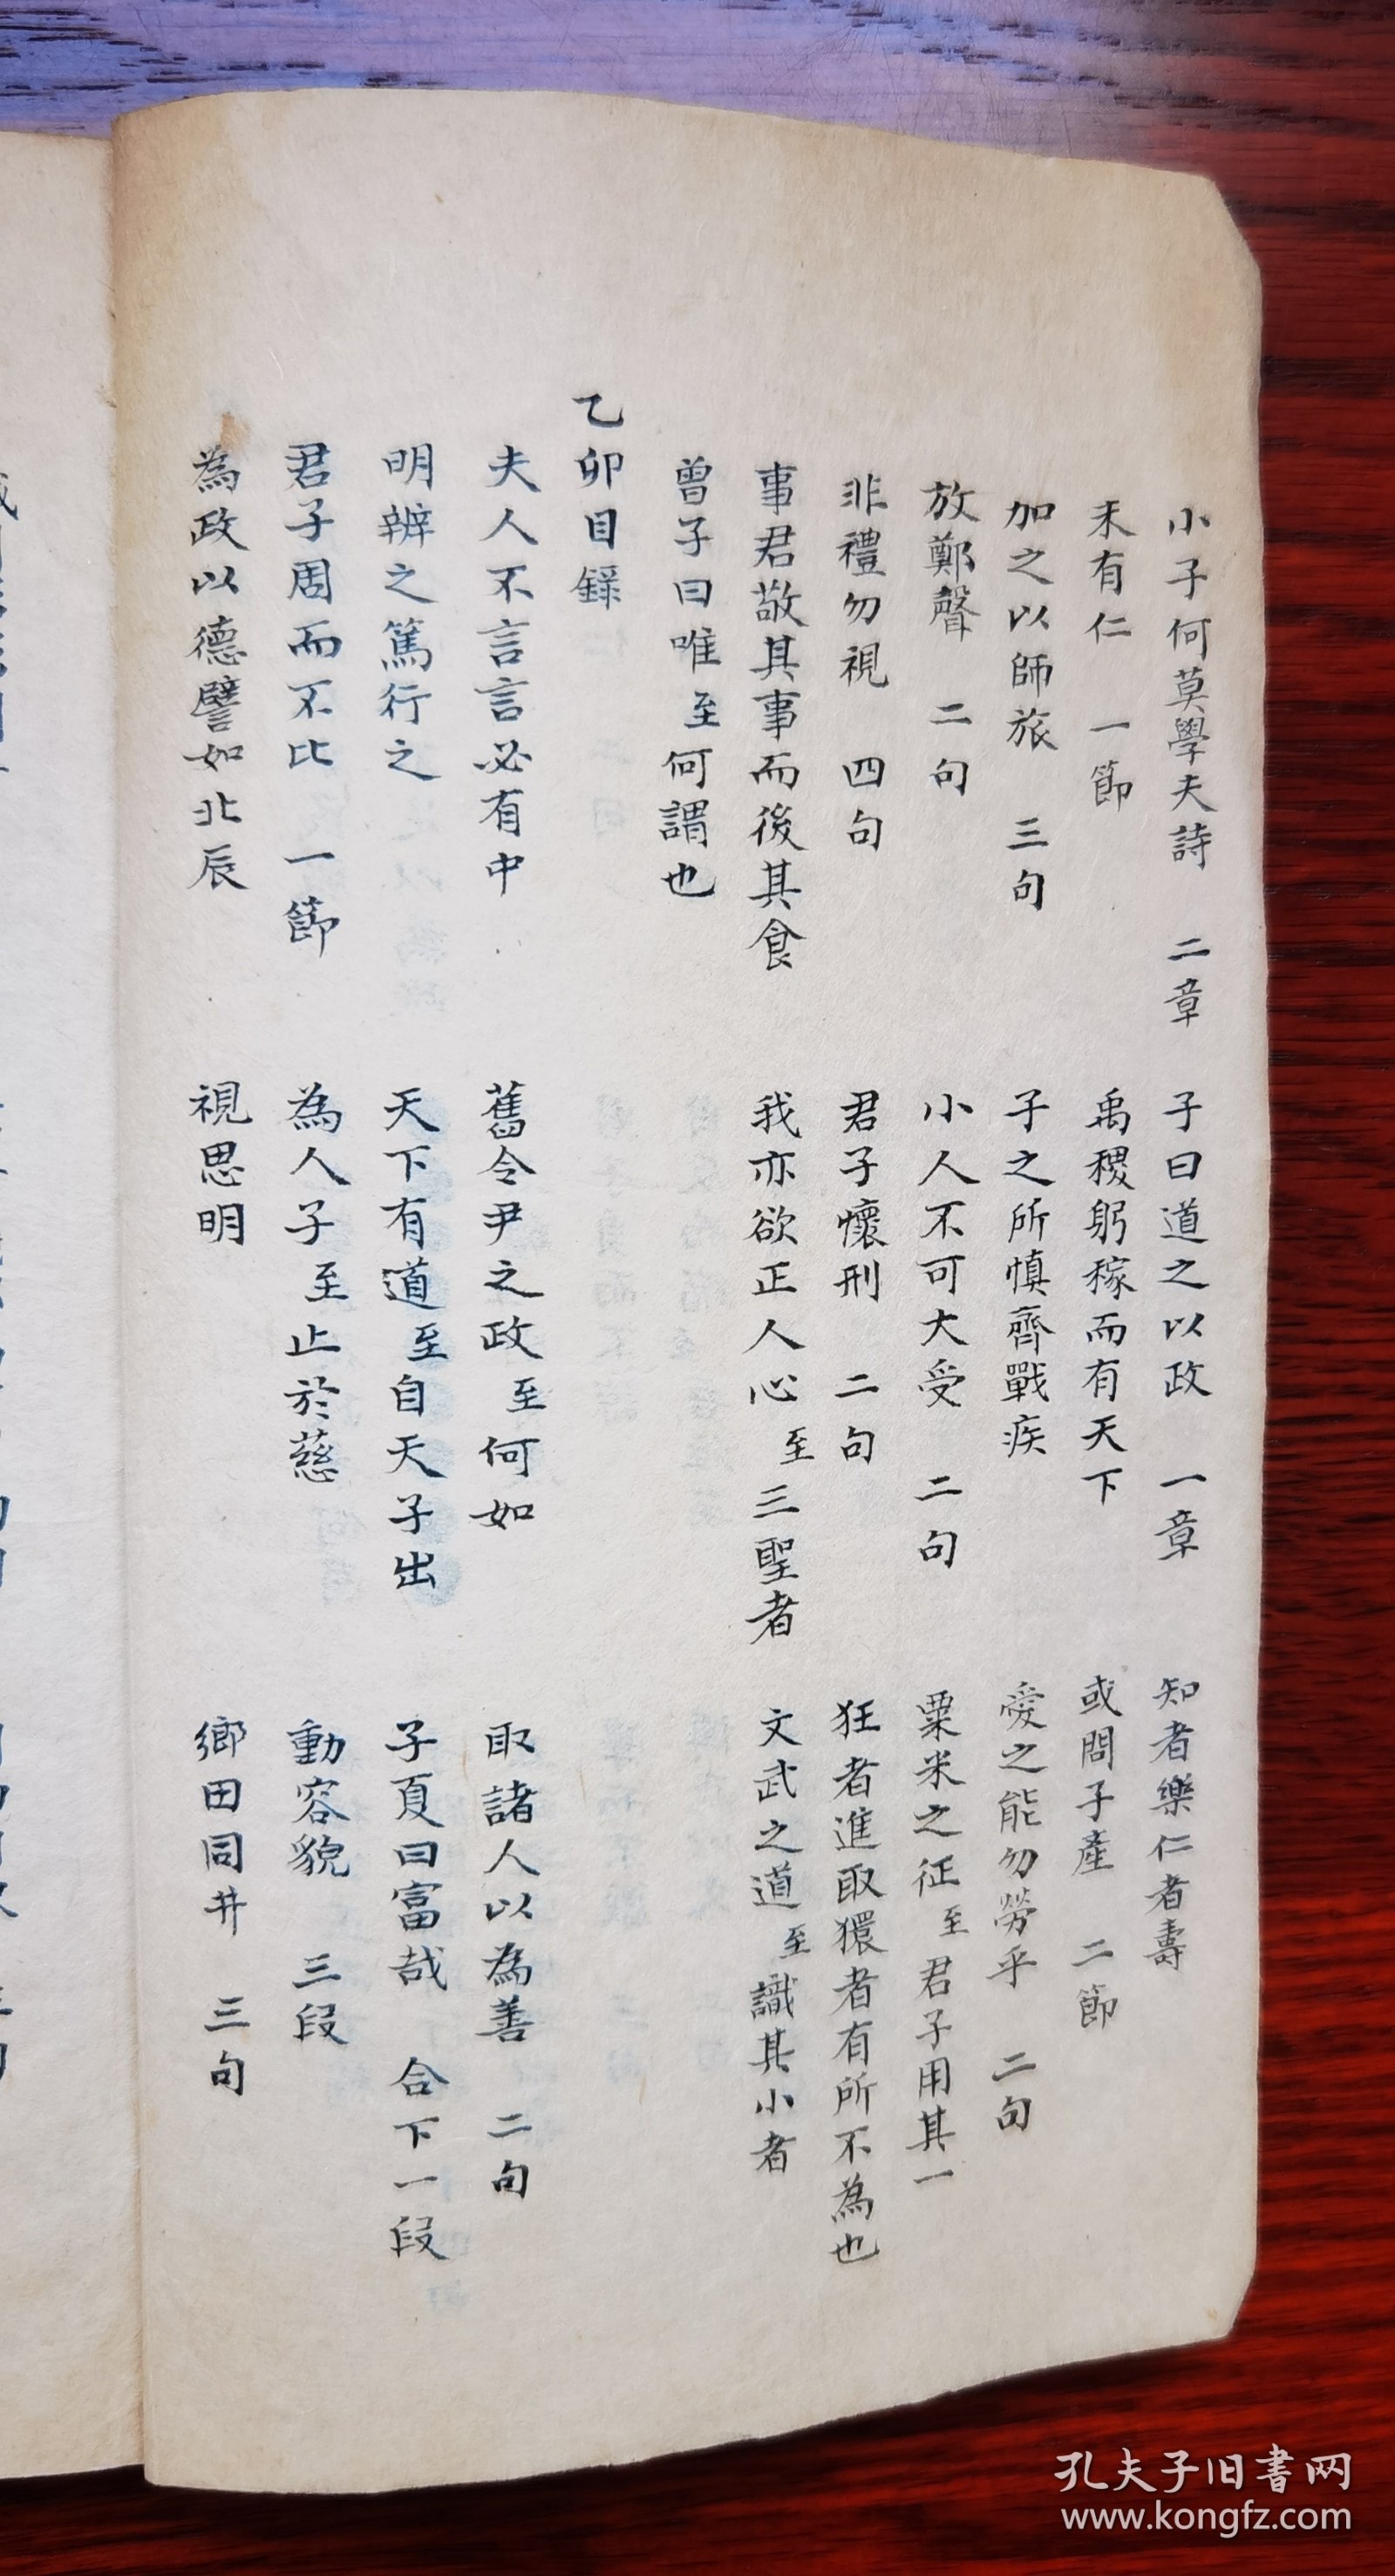 小子何莫學夫詩 二章 子曰道之以政 一章 知者樂仁者壽
未有仁 一節 禹稷躬稼而有天下 或問子產 二節
加之以師旅 三句 子之所慎齊戰疾 愛之能勿勞乎 二句
放鄭聲 二句 小人不可大受 二句 粟米之征至君子用其一
非禮勿視 四句 君子懷刑 二句 狂者進取獧者有所不為也
事君敬其事而後其食 我亦欲正人心至三聖者 文武之道至識其小者
曾子曰唯至何謂也
乙卯目録
夫人不言言必有中 舊令尹之政至何如 取諸人以為善 二句
明辨之篤行之 天下有道至自天子出 子夏曰富哉 合下一段
君子周而不比 一節 為人子至止於慈 動容貌 三段
為政以德譬如北辰 視思明 鄉田同井 三句
孔夫子旧書网
www.kongfz.com